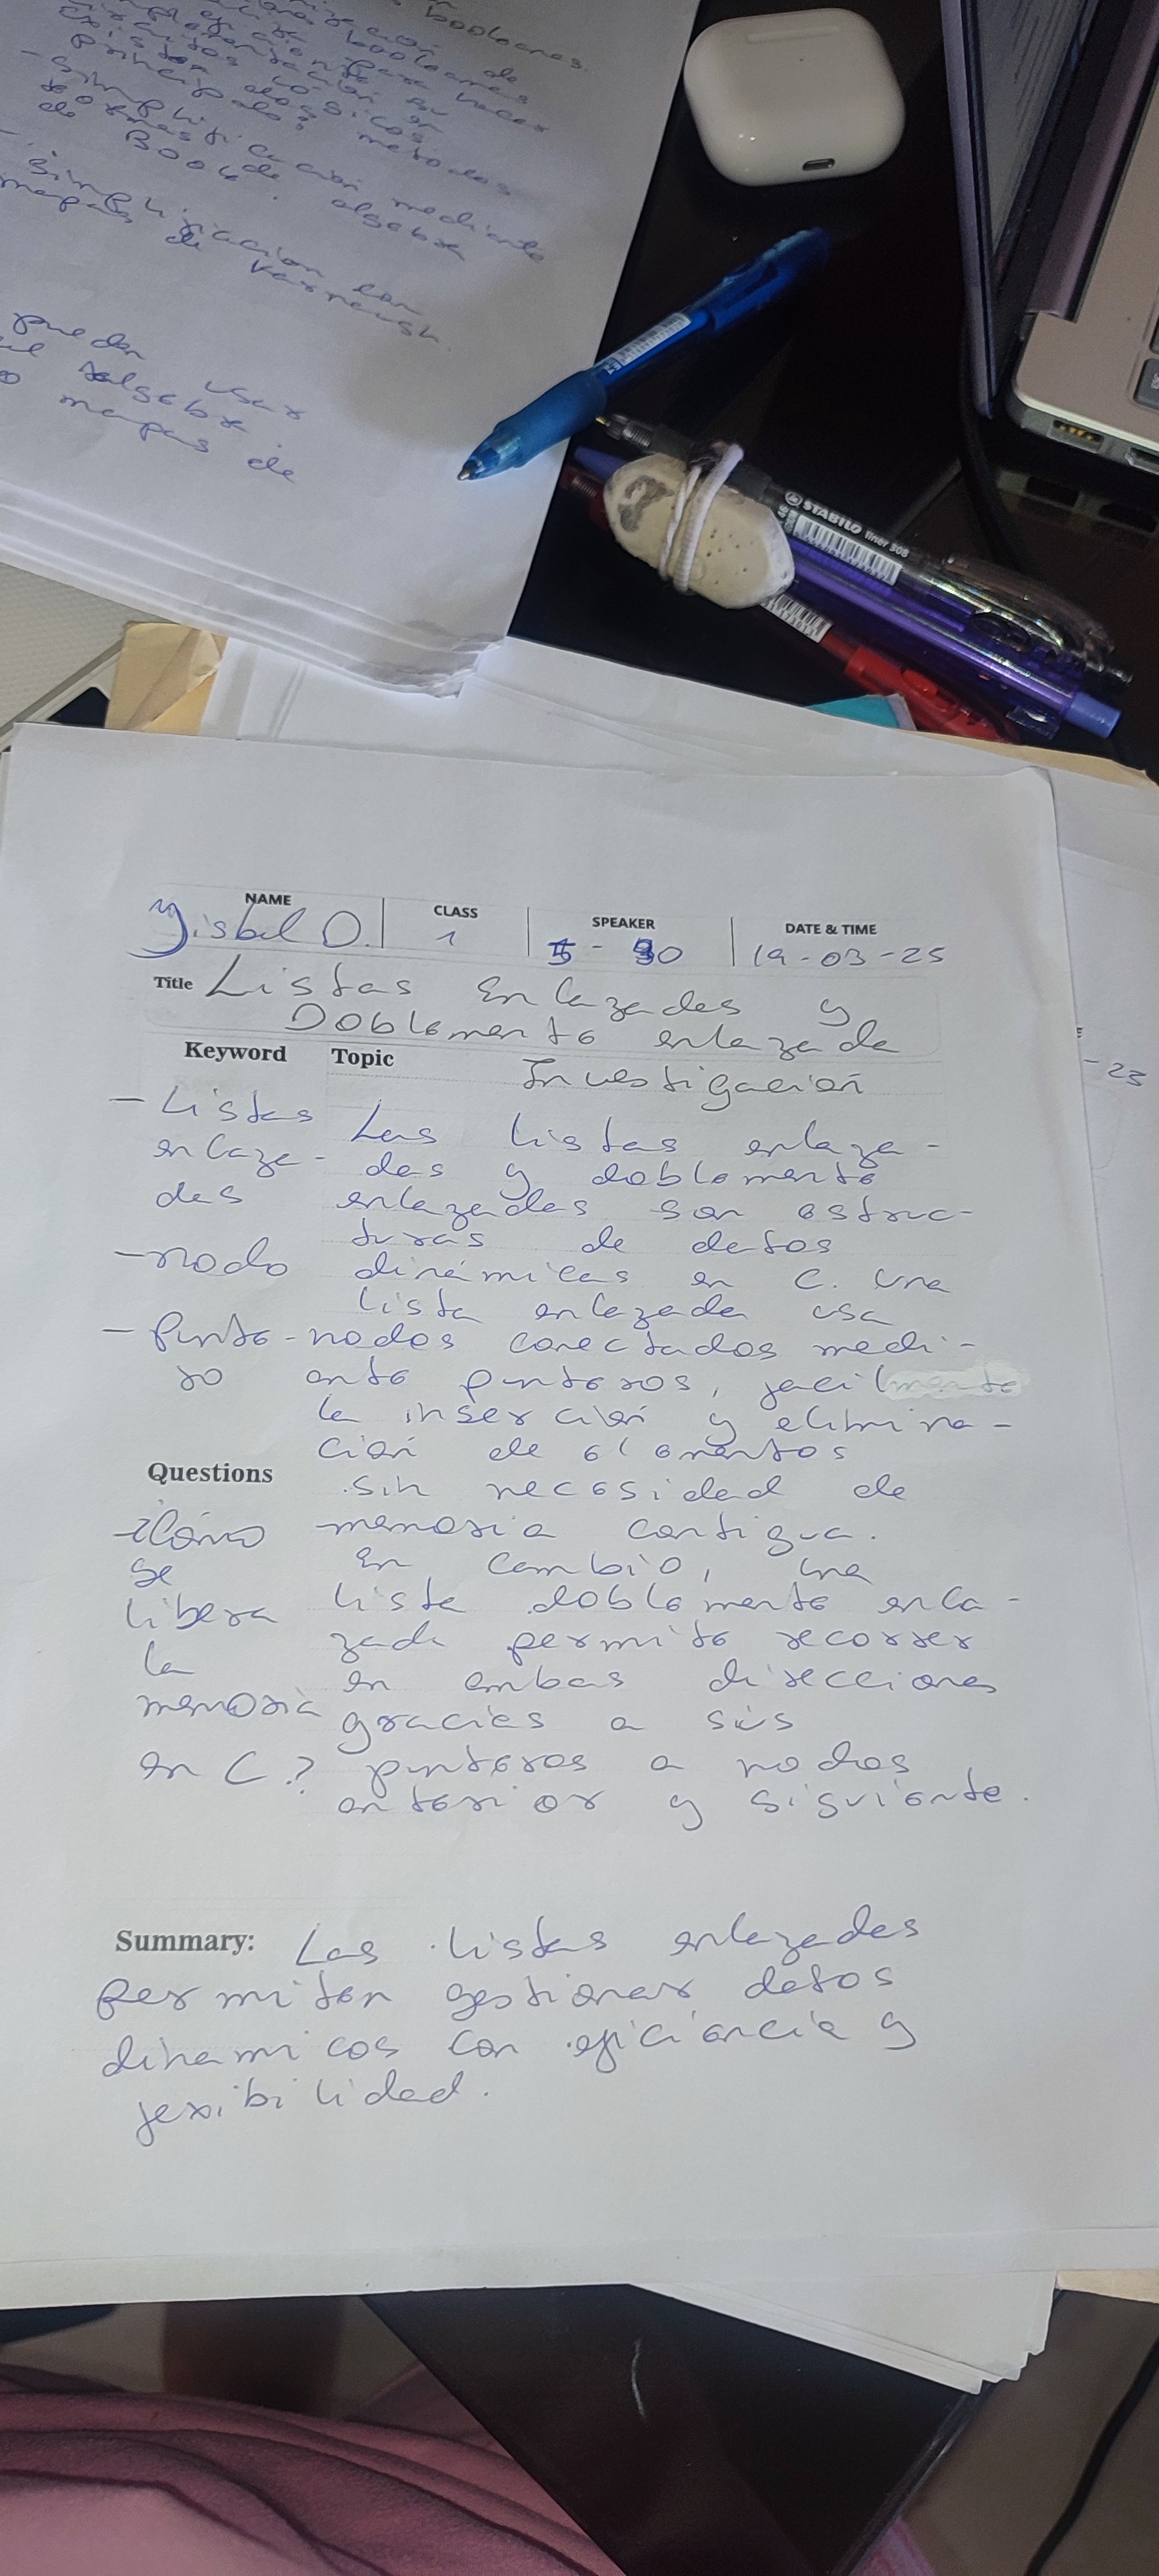 booleanas.
booleanas
de
existen dos
principales metodos
- Simplificación mediante
teoremas de algebra
de Boole.
- Simplificación con
mapas de Karnaugh.
pueden usar
algebra.
mapas de
STABILO liner 308
NAME
CLASS
SPEAKER
DATE & TIME
Yisbel O.
1
5 - 30
19-03-25
Title Listas Enlazadas y
Doblemente enlazada
Keyword Topic Investigación
- Listas
enlaza-
das
- nodo
- Punte-
ro
Las listas enlaza-
das y doblemente
enlazadas son estruc-
turas de datos
dinámicas en C. Una
lista enlazada usa
nodos conectados medi-
ante punteros, facilmente
la inserción y elimina-
ción de elementos
sin necesidad de
memoria contigua.
En cambio, una
lista doblemente enla-
zada permite recorrer
en ambas direcciones
gracias a sus
punteros a nodos
anterior y siguiente.
Questions
- ¿Cómo
se
libera
la
memoria
en C?
Summary: Las listas enlazadas
permiten gestionar datos
dinamicos con eficiencia y
fexibilidad.
-23